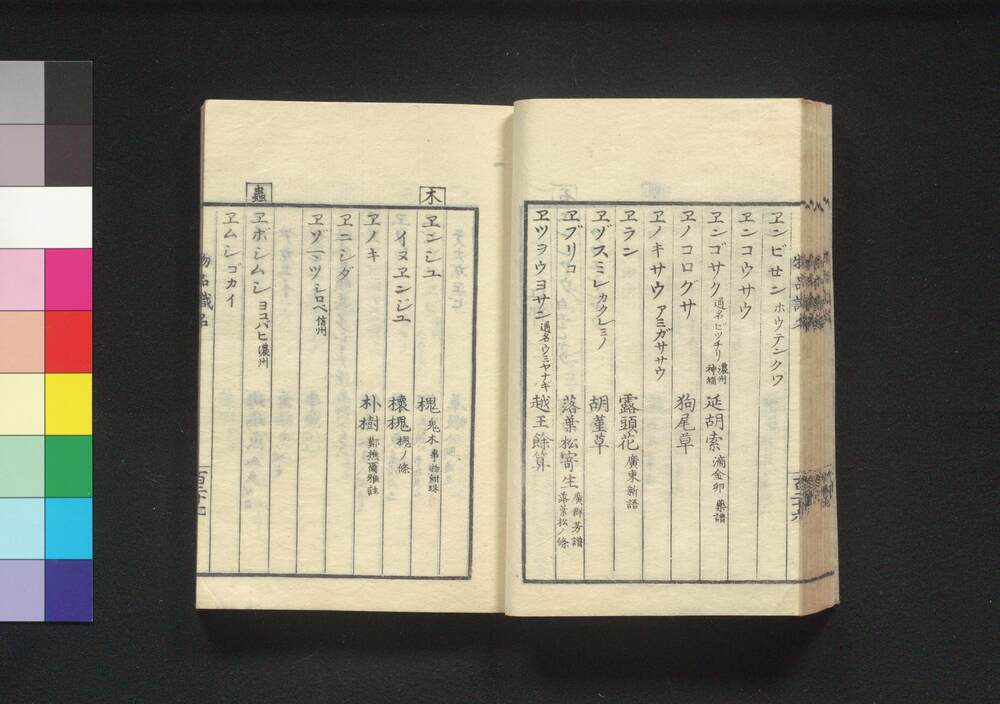 ヱンビセン ホウテンクワ
ヱンコウサウ
ヱンゴサク 通名 ビツチリ 濃州 神領 延胡索 滴金卵 藥譜
ヱノコログサ 狗尾草
ヱノキサウ アミガササウ
ヱラン 露頭花 廣東新語
ヱヅスミレ カクレミノ 胡菫草
ヱブリコ 落葉松寄生 廣群芳譜 落葉松ノ條
ヱツヲウヨサン 通名 ウミヤナギ 越王餘算
木
ヱンジユ 槐 鬼木 事物紺珠
ヱイヌヱンジユ 櫰槐 槐ノ條
ヱノキ 朴樹 鄭樵爾雅註
ヱニシダ
ヱゾマツ シロベ 信州
蟲
ヱボシムシ ヨコバヒ 濃州
ヱムシ ゴカイ
物品識名